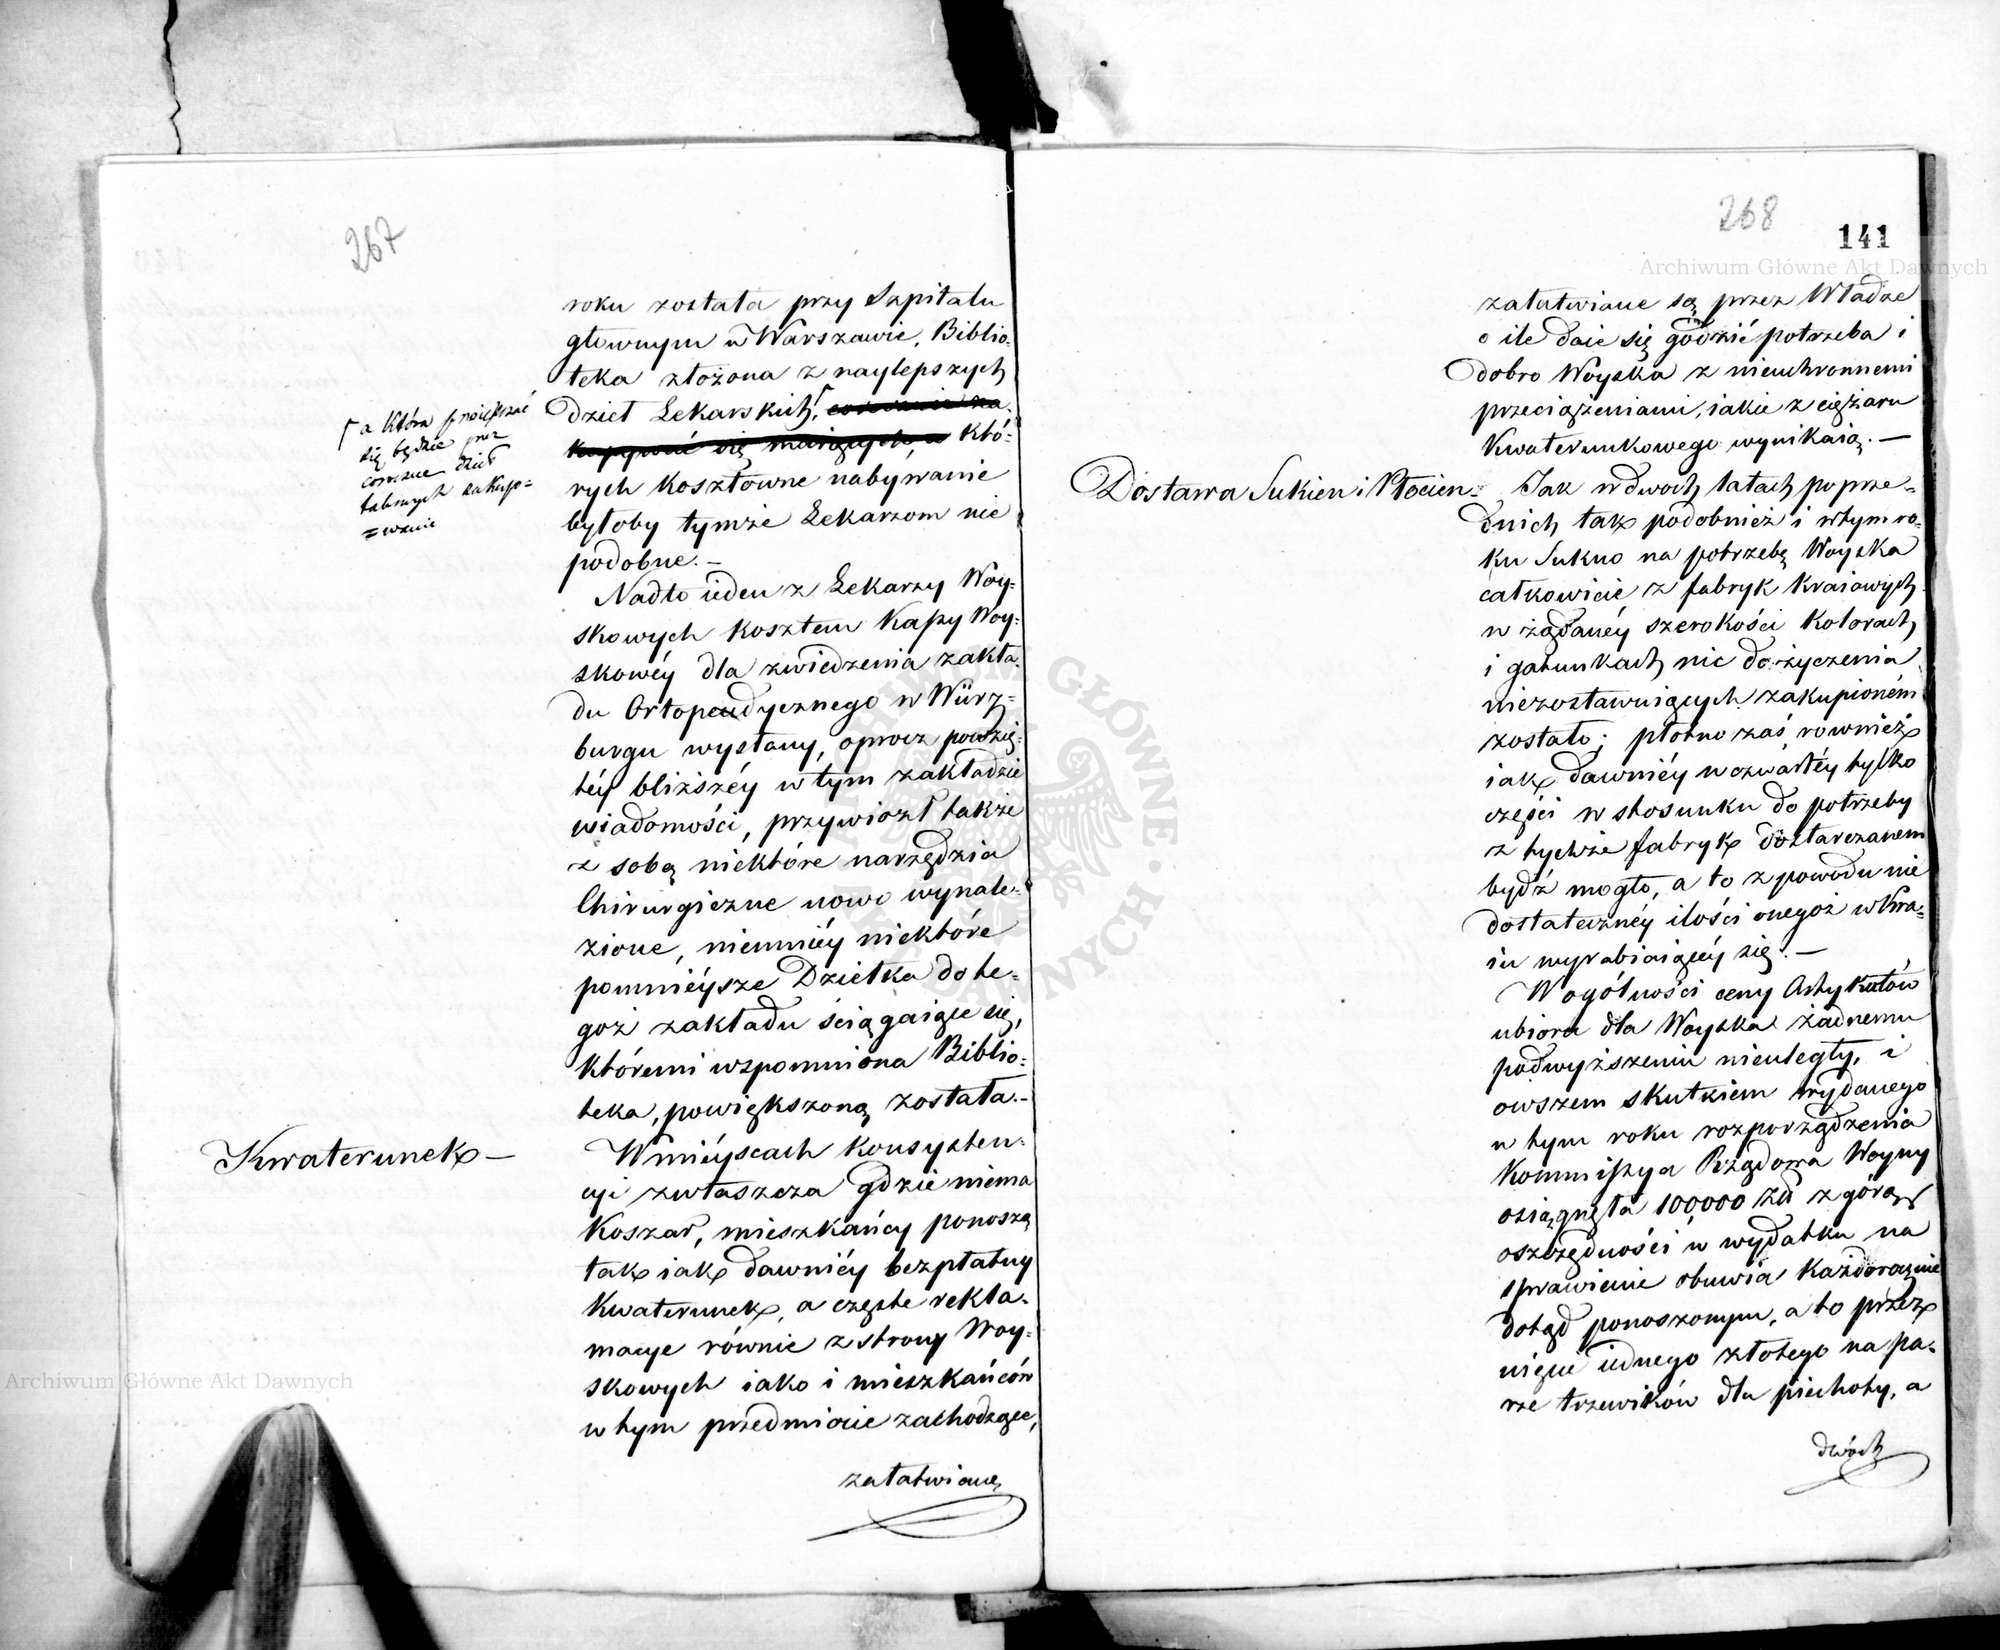 267
roku została przy Szpitalu
głownym w Warszawie, Biblio-
teka złożona z naylepszych
dzieł Lekarskich, ⌈ corocznie za-
kupywać się maiących, a któ-
rych kosztowne nabywanie
byłoby tymże Lekarzom nie
podobne. —
⌈ a która powiększać
się będzie przez
coroczne dzieł
takowych zakupo=
=wanie
Nadto ieden z Lekarzy Woy-
skowych kosztem Kassy Woy-
skowéy dla zwiedzenia zakła-
du Ortopedycznego w Würz-
burgu wysłany, oprocz powzię-
téy bliższéy w tym zakładzie
wiadomości, przywiozł także
z sobą niektóre narzędzia
Chirurgiczne nowo wynale-
zione, niemniéy niektóre
pomniéysze Dziełka do te-
goż zakładu ściągaiące się,
któremi wzpomniona Biblio-
teka, powiększoną została. —
Kwaterunek —
W miéyscach konsysten-
cyi zwłaszcza gdzie niema
Koszar, mieszkańcy ponoszą
tak iak dawniéy bezpłatny
Kwaterunek, a częste rekla-
macye równie z strony Woy-
skowych iako i mieszkańców
w tym przedmiocie zachodzące,
załatwiane
268
141
załatwiane są przez Władze
o ile daie się godzić potrzeba i
dobro Woyska z nieuchronnemi
przeciążeniami, iakie z ciężaru
Kwaterunkowego wynikaią. —
Dostawa Sukien i Płócien.
Jak w dwoch latach poprze-
dnich, tak podobnież i w tym ro-
ku Sukno na potrzebę Woyska
całkowicie z fabryk kraiowych
w żądanéy szerokości kolorach,
i gatunkach nic do życzenia
niezostawuiących zakupioném
zostało; płótno zaś, rownież
iak dawniéy w czwartéy tylko
części w stosunku do potrzeby
z tychże fabryk dostarczanem
bydź mogło, a to z powodu nie
dostatecznéy ilości onegoż w Kra-
iu wyrabiaiącéy się. —
W ogólności ceny Artykułów
ubioru dla Woyska żadnemu
podwyższeniu nieuległy, i
owszem skutkiem wydanego
w tym roku rozporządzenia
Kommissya Rządowa Woyny
osiągnęła 100,000 Zł z górą
oszczędności w wydatku na
sprawienie obuwia każdorocznie
dotąd ponoszonym, a to przez
uięcie iednego złotego na pa-
rze trzewików dla piechoty, a
dwóch
Archiwum Główne Akt Dawnych
Archiwum Główne Akt Dawnych